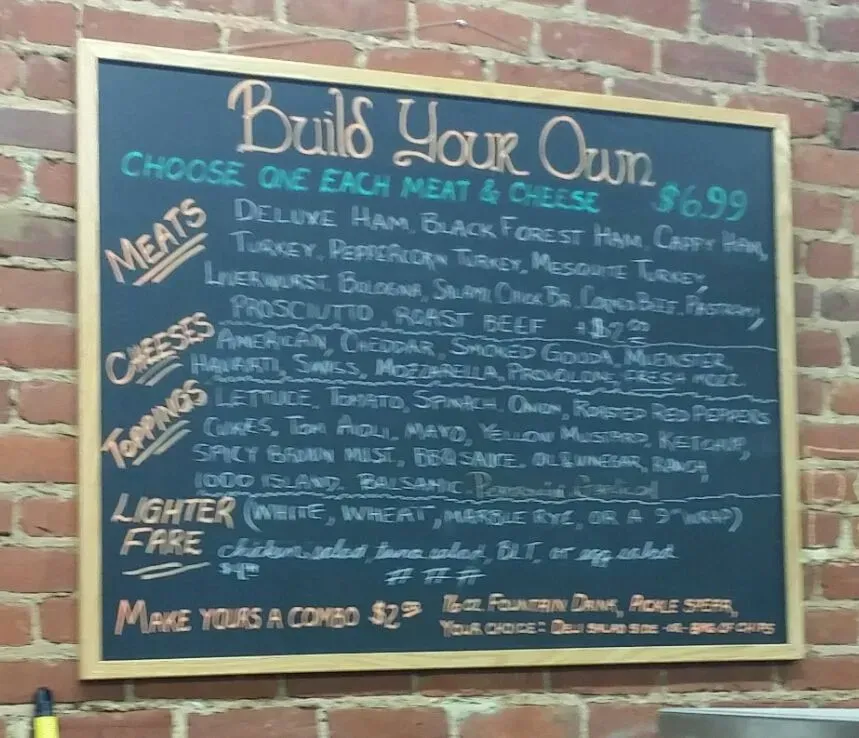 Build Your Own
CHOOSE ONE EACH MEAT & CHEESE $6.99
MEATS
DELUXE HAM, BLACK FOREST HAM, CAPPY HAM,
TURKEY, PEPPERCORN TURKEY, MESQUITE TURKEY,
LIVERWURST, BOLOGNA, SALAMI, CHICK BR, CORNED BEEF, PASTRAMI,
PROSCIUTTO, ROAST BEEF +$2.00
CHEESES
AMERICAN, CHEDDAR, SMOKED GOUDA, MUENSTER,
HAVARTI, SWISS, MOZZARELLA, PROVOLONE, FRESH MOZZ.
TOPPINGS
LETTUCE, TOMATO, SPINACH, ONION, ROASTED RED PEPPERS
CUKES, TOM AIOLI, MAYO, YELLOW MUSTARD, KETCHUP,
SPICY BROWN MUST, BBQ SAUCE, OIL & VINEGAR, RANCH,
1000 ISLAND, BALSAMIC
LIGHTER FARE
(WHITE, WHEAT, MARBLE RYE, OR A 9" WRAP)
chicken salad, tuna salad, BLT, or egg salad
MAKE YOURS A COMBO $2.99
16oz FOUNTAIN DRINK, PICKLE SPEAR,
YOUR CHOICE: DELI SALAD SIDE -OR- BAG OF CHIPS